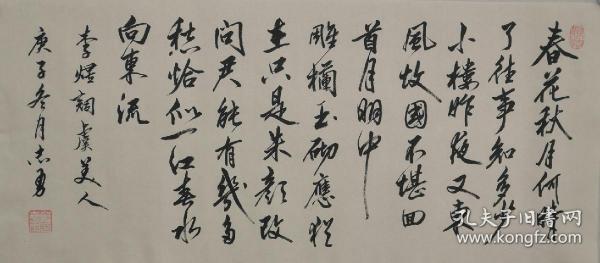 春花秋月何時
了往事知多少
小樓昨夜又東
風故國不堪回
首月明中
雕欄玉砌應猶
在只是朱顏改
問君能有幾多
愁恰似一江春水
向東流
李煜詞虞美人
庚子冬月志勇
孔夫子旧书网
www.kongfz.com